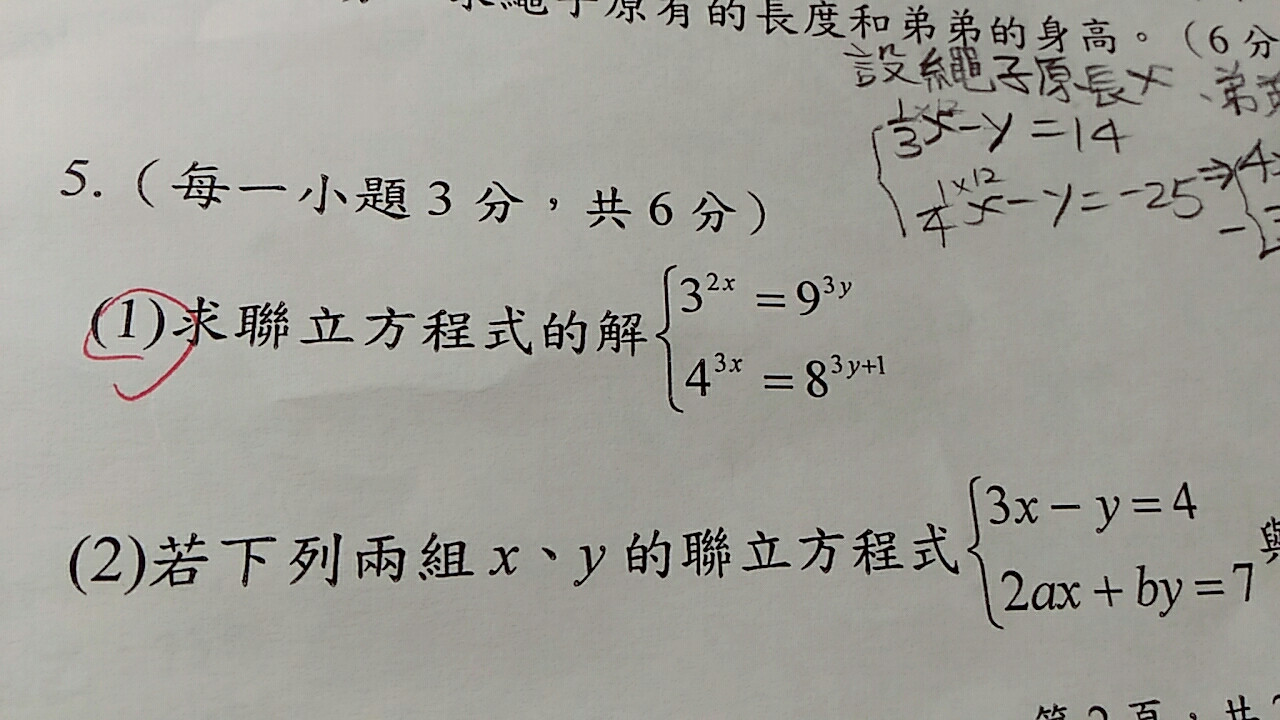 求繩子原有的長度和弟弟的身高。(6分
設繩子原長x、弟
1/3x-y=14
1/4x-y=-25⇒
×12
×12
5.(每一小題3分,共6分)
(1)求聯立方程式的解 3^{2x}=9^{3y}
4^{3x}=8^{3y+1}
(2)若下列兩組x、y的聯立方程式 3x-y=4
2ax+by=7
與
第2頁,共